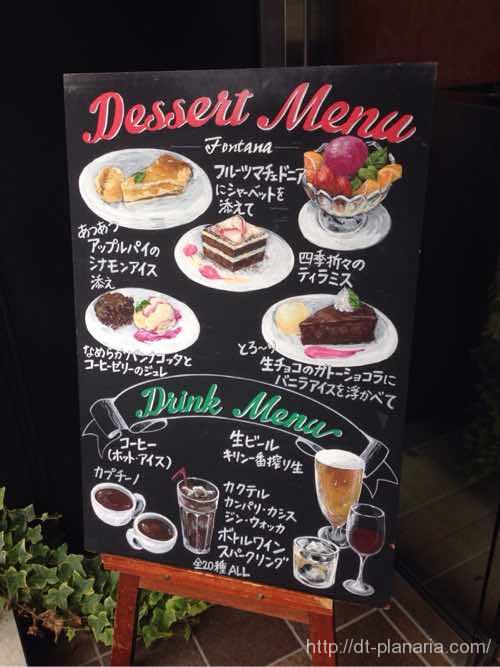 Dessert Menu
Fontana
フルーツマチェドニア
にシャーベットを
添えて
あつあつ
アップルパイの
シナモンアイス
添え
四季折々の
ティラミス
なめらかパンナコッタと
コーヒーゼリーのジュレ
とろ〜り
生チョコのガトーショコラに
バニラアイスを浮かべて
Drink Menu
コーヒー
(ホット・アイス)
カプチーノ
生ビール
キリン一番搾り生
カクテル
カンパリ・カシス
ジン・ウォッカ
ボトルワイン
スパークリング
全20種 ALL
http://dt-planaria.com/